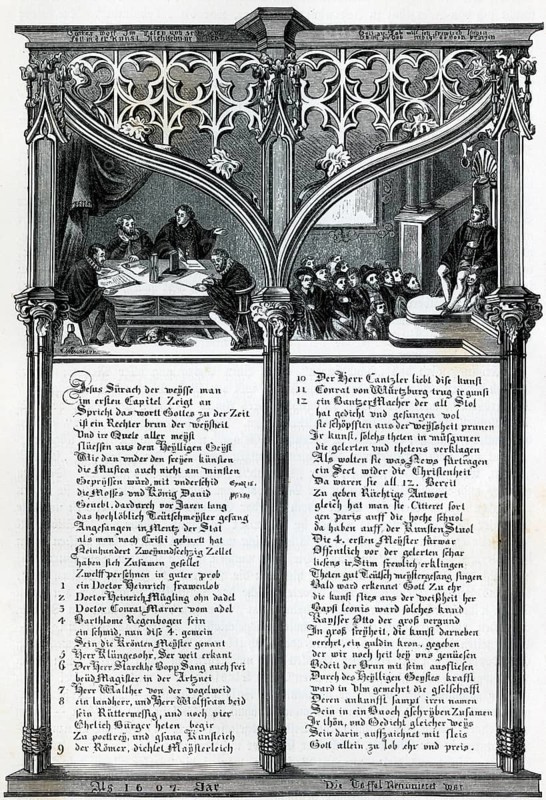 Jesus Sürach der weÿsse man
im ersten Capitel Zeigt an
Spricht das wortt Gottes zu der Zeit
ist ein Rechter brun der weÿsheil
Und ire Quele aller meÿst
flüessen aus dem Heÿlligen Geÿst
Wie dan under den freÿen künsten
die Musica auch nicht am minsten
Geprÿssen würd, mit underschid
die Mosses und König David
Geuebt, dardurch vor Jaren lang
das hochlöblich Teütschmeÿster gesang
Angefangen in Mentz der Stat
als man nach Cristi geburtt hat
Neinhundert Zweÿundsechzig Zellet
haben sich Zusamen gesellet
Zwelff perschnen in guter prob
1 ein Doctor Heinrich frawenlob
2 Doctor Heinrich Mügling ohn dadel
3 Doctor Conrat Marner vom adel
4 Barthlome Regenbogen fein
ein schmid, nun dise 4. gemein
Sein die Krönten Meÿster genant
5 Herr Klüngesohr, Der weit erkant
6 Der Herr Starckhe Bopp Sang auch frei
beüd Magister in der Artznei
7 Herr Walther von der vogelweid
8 ein landherr, und Herr Wolffram beid
sein Rüttermessig, und noch vier
Ehrlich Bürger heten begir
Zu poettreÿ, und gsang Künstlich
9 der Römer, dichtet Maÿsterleich
10 Der Herr Cantzler liebt dise kunst
11 Conrat von Würtzburg trug ir gunst
12 ein Bantzer Macher der alt Stol
hat gedicht und gesungen wol
sie schöpfften aus der weÿssheit prunen
Ir kunst, solchs theten in müsgunen
die gelerten und thetens verklagen
Als wolten sie was News fürtragen
ein Sect wider die Christenheit
Da waren sie all 12. Bereit
Zu geben Rüchtige Antwort
gleich hat man sie Citieret fort
gen paris auff die hoche schuol
da haben auff der Kunsten Stuol
Die 4. ersten Meÿster fürwar
Offentlich vor der gelerten schar
liesens ir Stim frewlich erklingen
Theten gut Teutsch meÿstergesang singen
Bald ward erkenet Gott Zu ehr
die kunst flies aus der weißheit her
Bapst leonis ward solches kund
Kaÿsser Otto der groß vergund
In groß freÿheit, die kunst darneben
verehrt, ein guldin kron, gegeben
der wir noch heit beÿ uns genüesen
Bedeit der Brun mit seim ausfliesen
Durch des Heÿlligen Geÿstes krafft
ward in Ulm gemehrt die gselschafft
Deren ankunfft sampt iren namen
Sein in ein Buoch gschriben Zusamen
Ir thön, und Gedicht gleicher weÿs
Sein darin, auffzaichnet mit fleis
Gott allein zu lob ehr und preis.
Als 1607. Jar
Die Taffel Renuvieret war